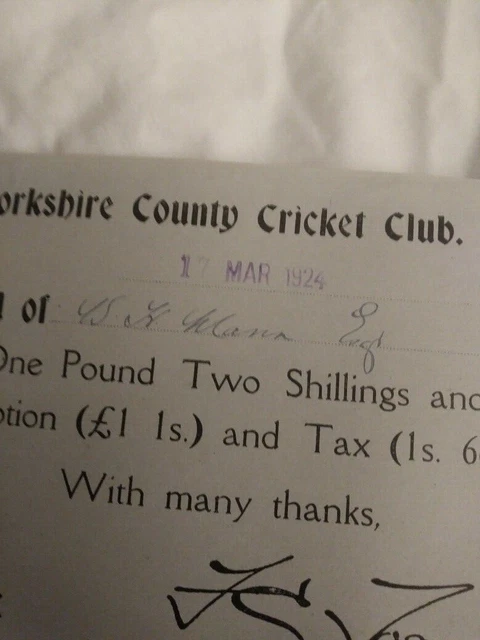 orkshire County Cricket Club.
17 MAR 1924
d of W H Mann Esq
One Pound Two Shillings and
ption (£1 1s.) and Tax (1s. 6
With many thanks,